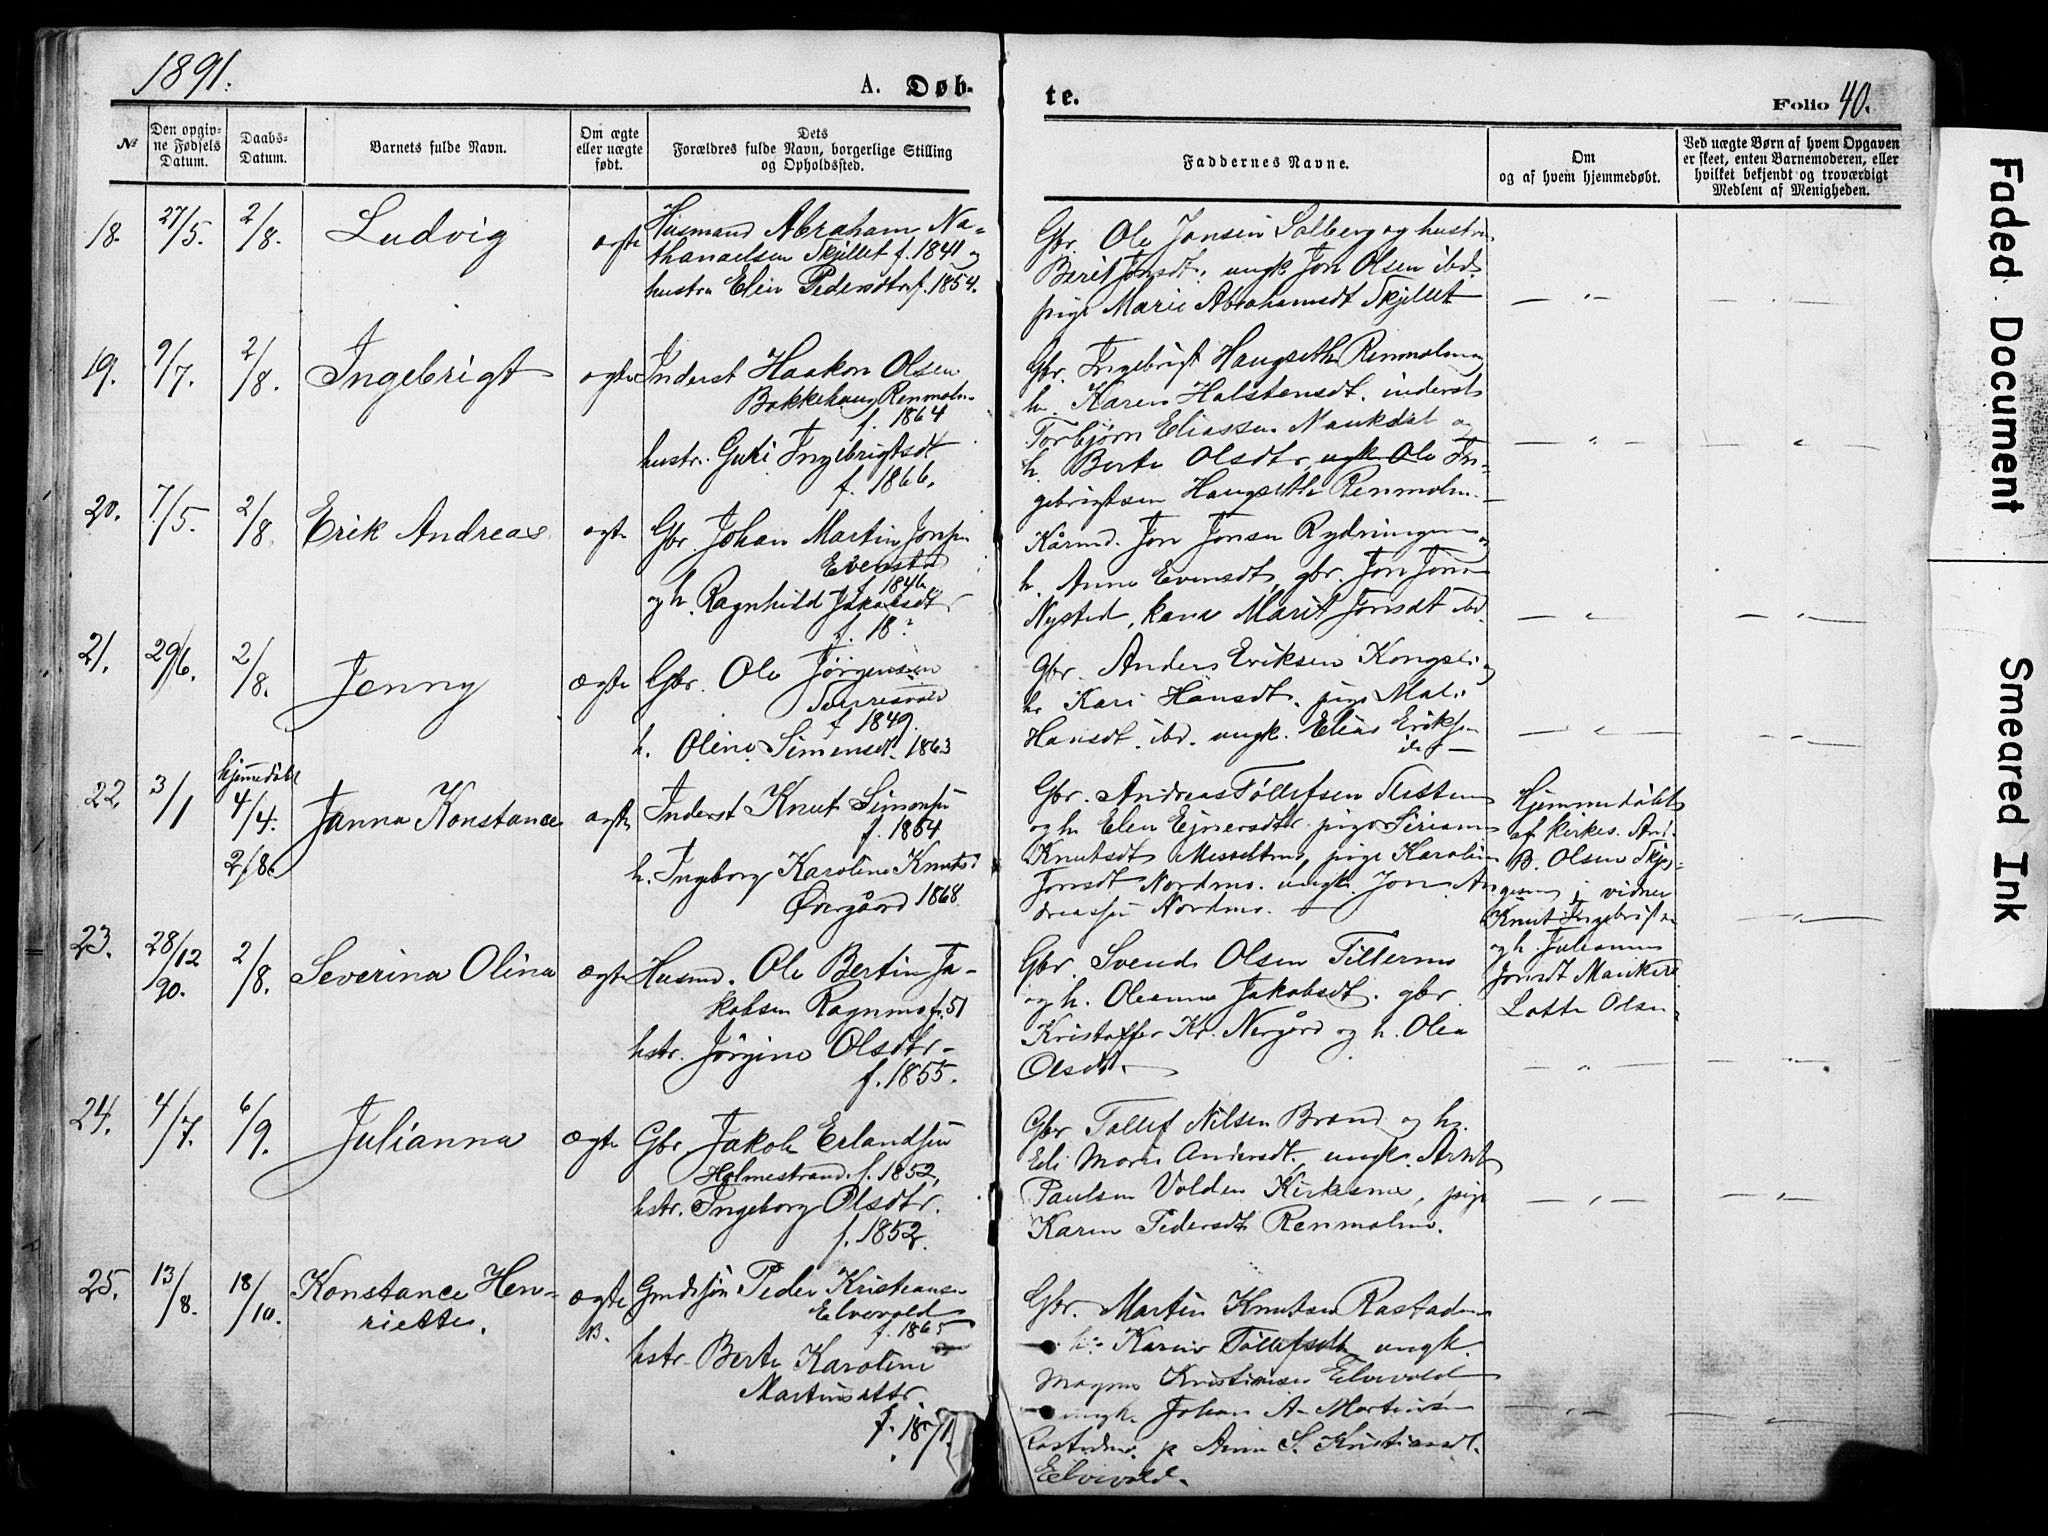 1891.
A. Døb-
te.
Folio 40.
№
Den opgiv-
ne Fødsels
Datum.
Daabs-
Datum.
Barnets fulde Navn.
Om ægte
eller uægte
født.
Dets
Forældres fulde Navn, borgerlige Stilling
og Opholdssted.
Faddernes Navne.
Om
og af hvem hjemmedøbt.
Ved uægte Børn af hvem Opgaven
er skeet, enten Barnemoderen, eller
hvilket bekjendt og troværdigt
Medlem af Menigheden.
18.
27/5.
2/8.
Ludvig
ægte
Husmand Abraham Na-
thanaelsen Skjellet f. 1841 og
hustru Elen Pedersdtr f. 1854.
Gbr. Ole Jonsen Solberg og hustru
Berit Jonsdt. ungk. Jon Olsen ibd.
pige Marie Abrahamsdt Skjellet
19.
9/7.
2/8.
Ingebrigt
ægte
Inderst Haakon Olsen
Bakkehaug Renmolm.
f. 1864
hustr. Guri Ingebrigtsdt
f. 1866.
Gbr. Ingebrigt Haugseth Renmolm og
h. Karen Halstensdt. inderst
Torbjørn Eliassen Maukdal og
h. Berte Olsdtr, ungk Ole In-
gebrigtsen Haugseth Renmolm.
20.
7/5.
2/8.
Erik Andreas
ægte
Gbr Johan Martin Jonsen
f. 1846.
og h. Ragnhild Jakobsdt
f. 18 ?
Kårmd. Jon Jonsen Rydningen og
h. Anne Evensdt, gbr. Jon Jons
Nysted, kone Marit Jonsdt ibd.
21.
29/6.
2/8.
Jenny
ægte
Gbr. Ole Jörgensen
f 1849.
h. Oline Simensdt. 1863
Gbr. Anders Eriksen Kongsli og
h. Kari Hansdt. pige Mali
Hansdt. ibd. ungk. Elias Eriksen
ibd
22.
3/1
hjemmedøbt
4/4.
2/8.
Janna Konstance
ægte
Inderst Knut Simonsen
f. 1864
h. Ingeborg Karoline Knuts
Øvergård 1868.
Gbr. Andreas Tøllefsen
og h Elen Ejnersdtr pige
Knutsdt Messeltmo, pige Karoline
Jonsdt Nordmo. ungk. Jon An-
dreassen Nordmo.
Hjemmedøbt
af kirkes. And.
B. Olsen
vidner
Knut Ingebrigtsen
og h. Julianne
Jonsdt
Lotte Olsen
23.
28/12
90.
2/8.
Severina Olina
ægte
Husmd. Ole Bertin Ja-
kobsen Ragnmo f. 51
hstr. Jörgine Olsdtr-
f. 1855.
Gbr. Svend Olsen Tillermo
og h. Oleanna Jakobsdt. gbr.
Kristoffer Kr. Nergård og h. Olea
Olsdt.
24.
4/7.
6/9.
Julianna
ægte
Gbr Jakob Erlandsen
Holmestrand. f. 1852,
hstr. Ingeborg Olsdtr.
f. 1852.
Gbr Tollef Nilsen Brand og h.
Eli Marie Andersdt, ungk. Arnt
Paulsen Volden Kirkesnes, pige
Karen Pedersdt Renmolm.
25.
13/8.
18/10.
Konstance Hen-
riette.
ægte
NB.
Grndsön Peder Kristiansen
Elvevold
f. 1865
hstr. Berte Karoline
Martinsdtr
f. 1871.
Gbr. Martin Knutsen Rostaden
h. Karen Tøllefsdt ungk.
Magnus Kristiansen Elvevold
ungk. Johan A. Martinsen
p. Anne S. Kristiansdt.
Elvevold.
Faded Document
Smeared Ink